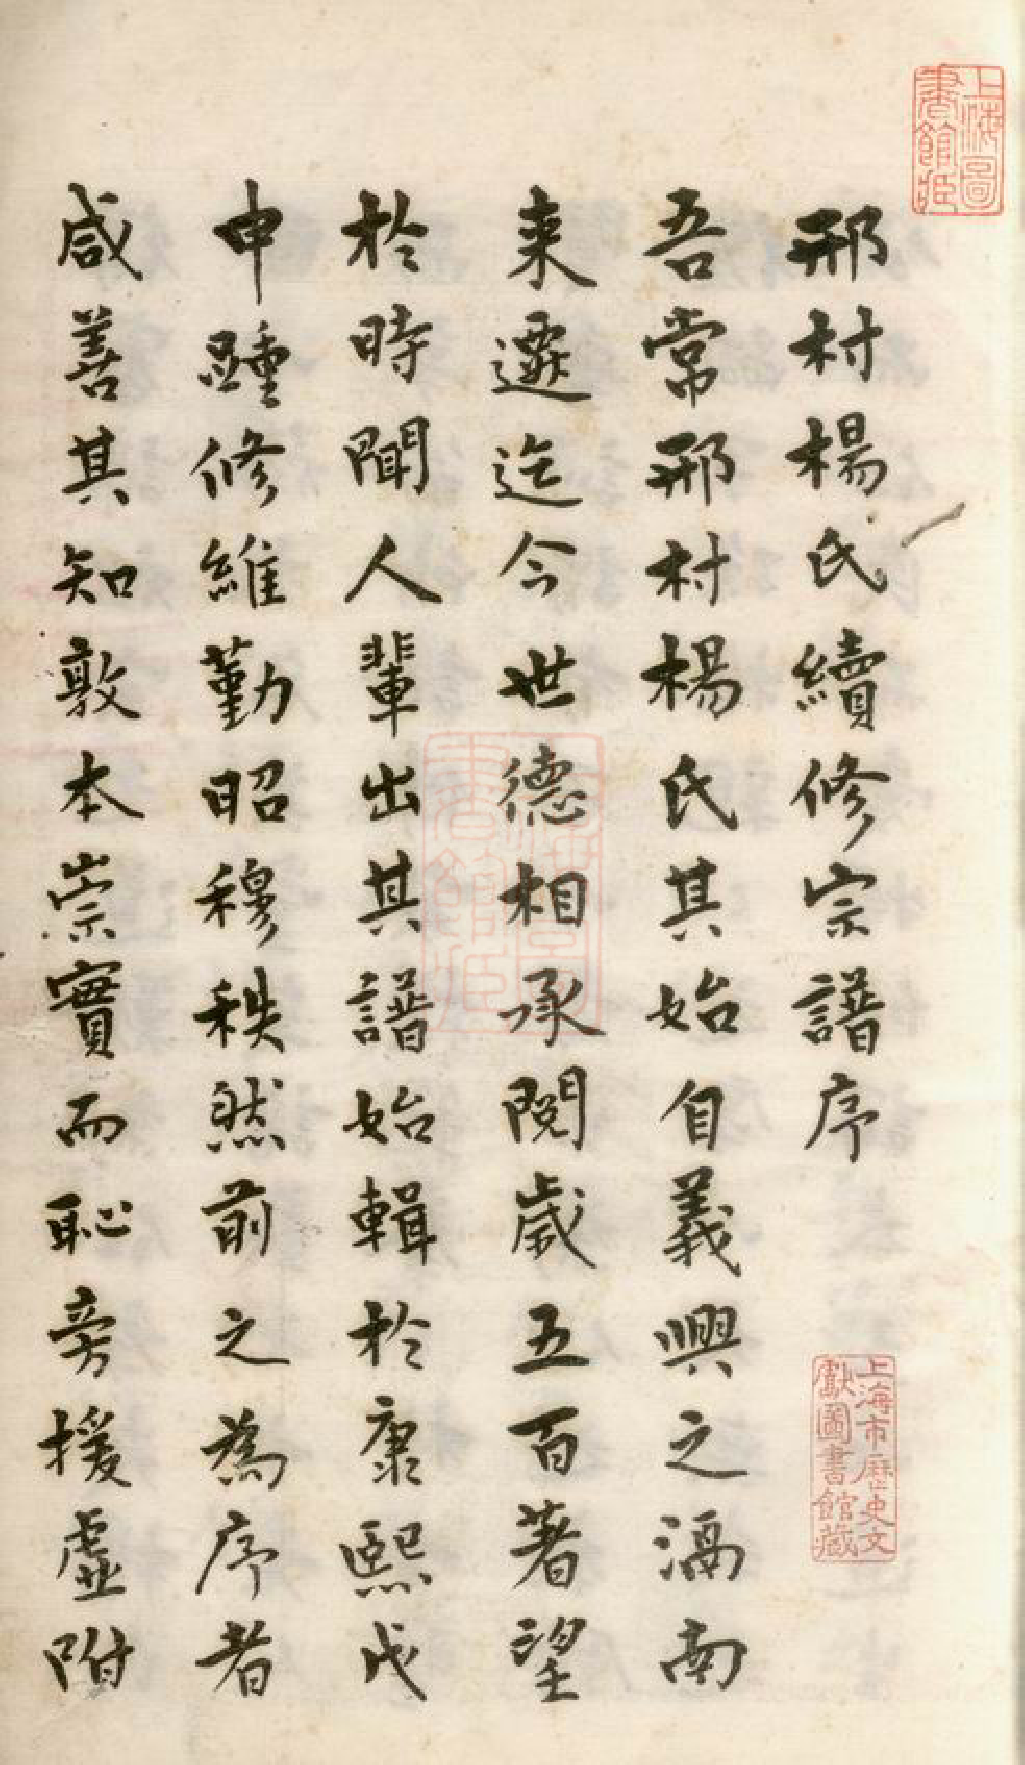 邢村楊氏續修宗譜序
吾常邢村楊氏其始自義興之滆南
來遷迄今世德相承閱歲五百著望
於時聞人輩出其譜始輯於康熙戊
申踵修維勤昭穆秩然前之為序者
咸善其知敦本崇實而恥旁援虛附
上海圖書館藏
上海市歷史文獻圖書館藏